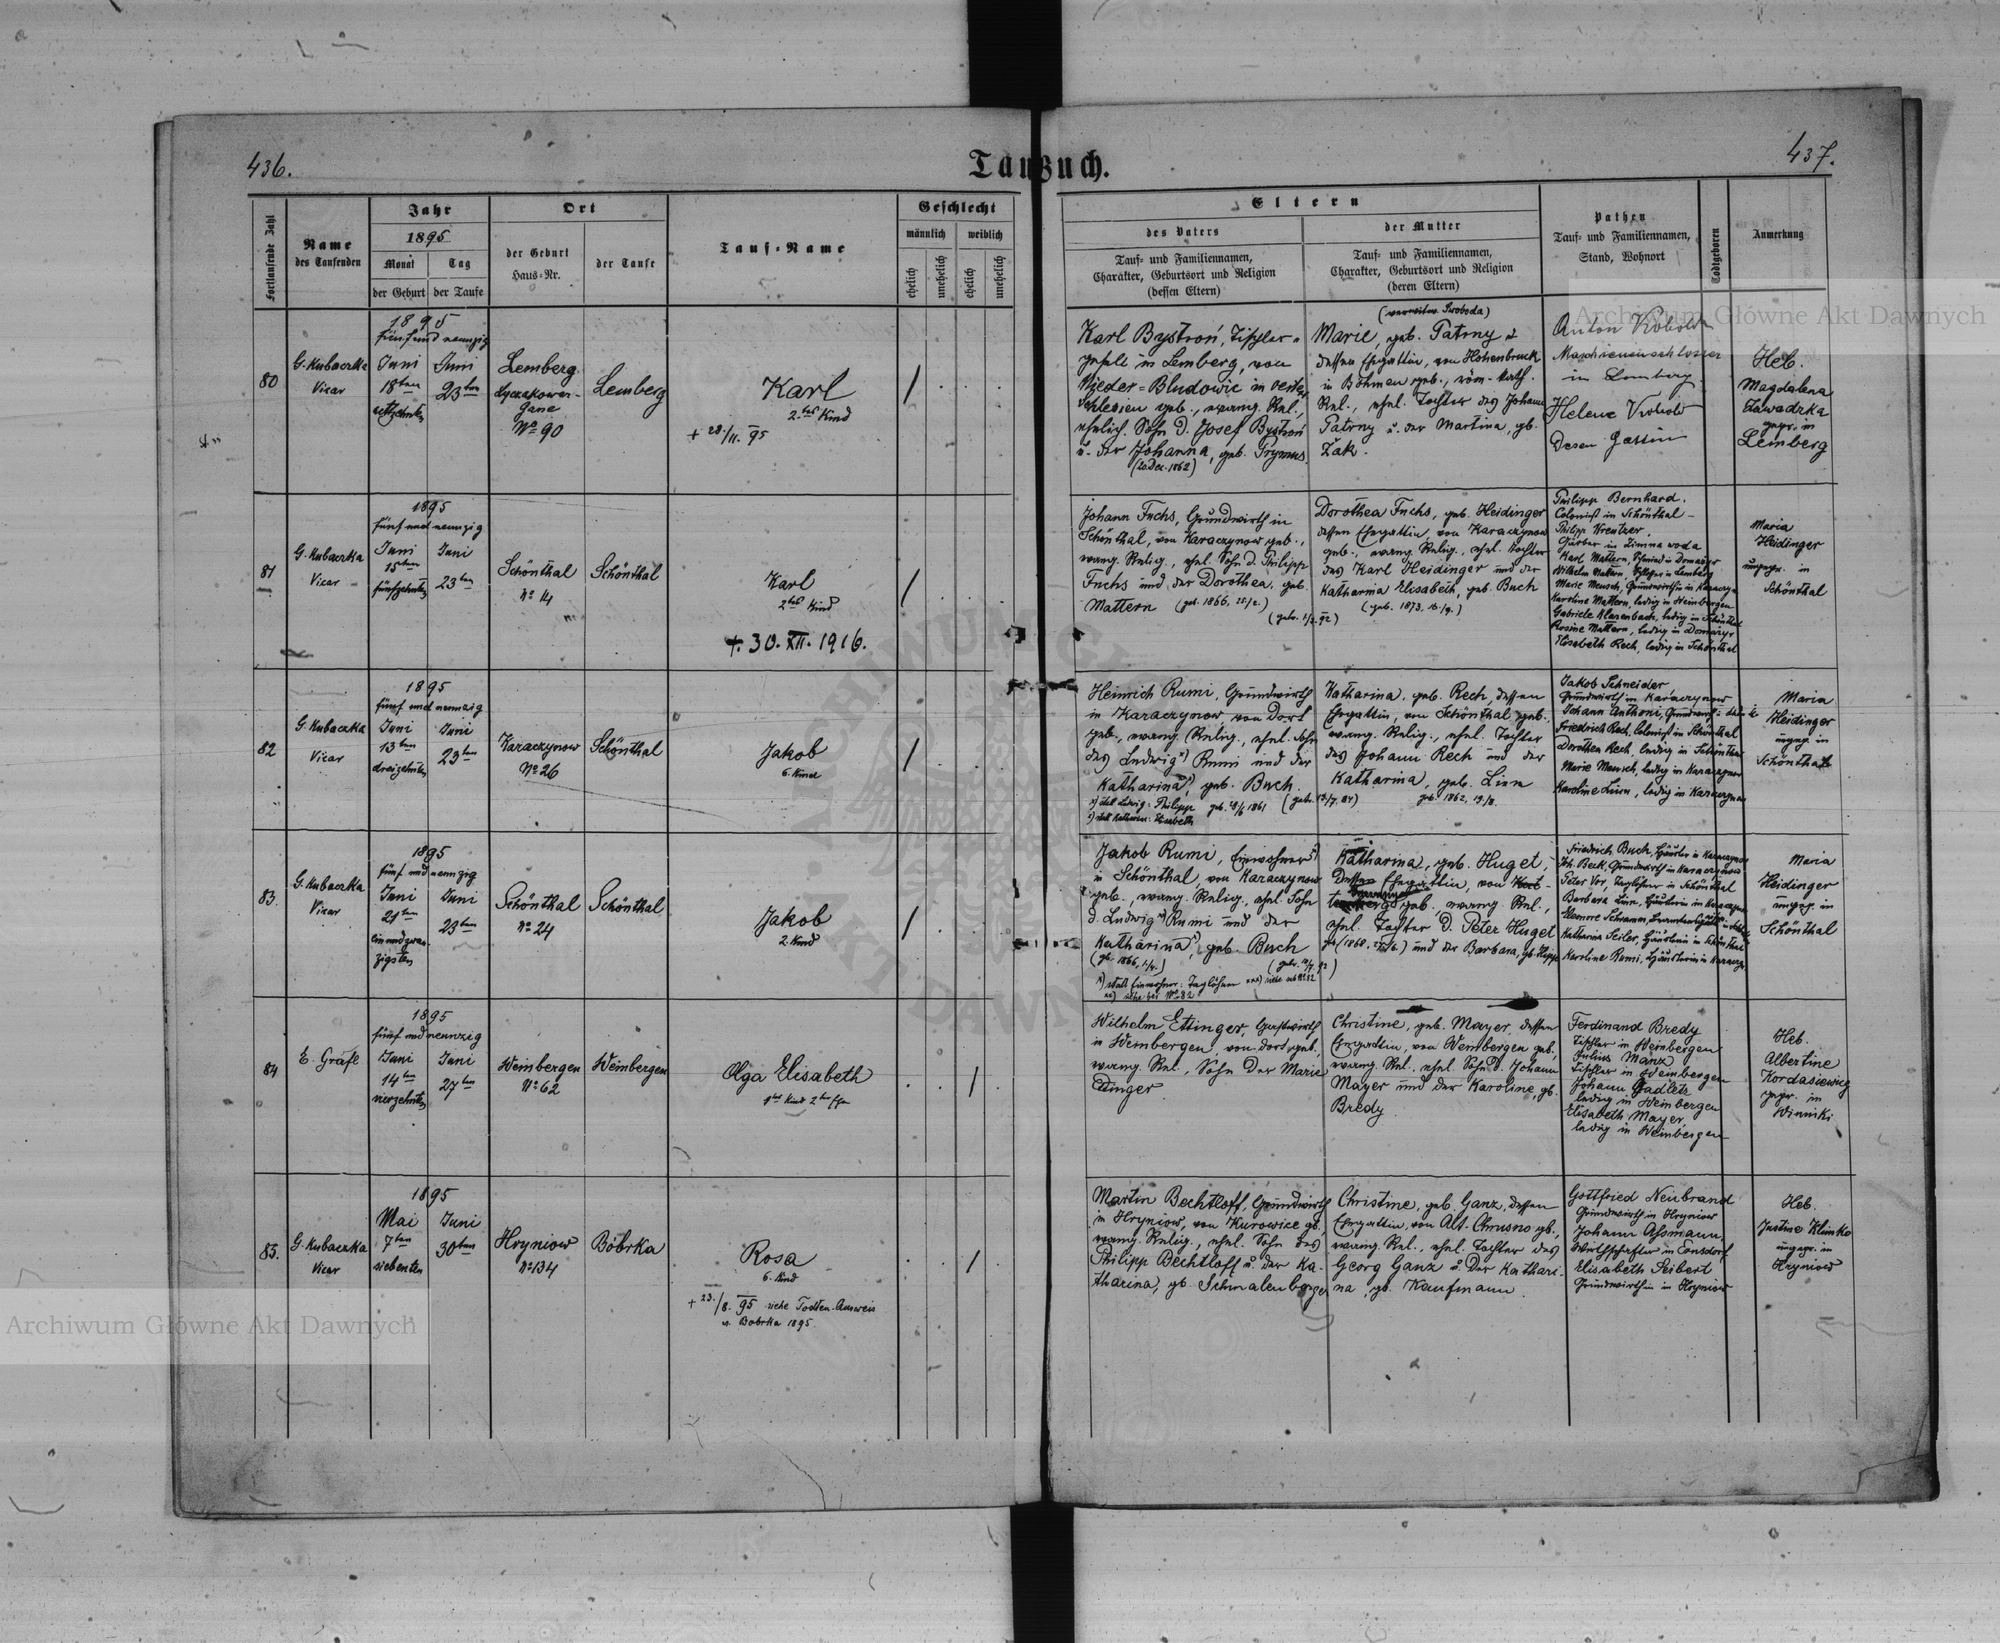 436.
Taufbuch.
437.
Fortlaufende Zahl
Name
des Taufenden
Jahr
1895
Monat
Tag
der Geburt
der Taufe
Ort
der Geburt
Haus-Nr.
der Taufe
Tauf-Name
Geschlecht
männlich
weiblich
ehelich
unehelich
ehelich
unehelich
Eltern
des Vaters
Tauf- und Familiennamen,
Charakter, Geburtsort und Religion
(dessen Eltern)
der Mutter
Tauf- und Familiennamen,
Charakter, Geburtsort und Religion
(deren Eltern)
Pathen
Tauf- und Familiennamen,
Stand, Wohnort
Todtgeboren
Anmerkung
80
G. Kubaczka
Vicar
1895
fünf und neunzig
Juni
18ten
achtzehnten
Juni
23ten
Lemberg
Lyczakower-
Gasse
No 90
Lemberg
Karl
2tes Kind
+ 28./11. 95
Karl Bystroń, Tischler-
gesell in Lemberg, von
Nieder-Bludowic in Oester.
Schlesien geb., evang. Rel.,
ehelich. Sohn d. Josef Bystroń
u. der Johanna, geb. Prymus.
(verwitw. Svoboda)
Marie, geb. Patrny
dessen Ehegattin, von Hohenbruck
in Böhmen geb., röm.-kath.
Rel., ehel. Tochter des Johann
Patrny u. der Martina, gb.
Žak.
Anton Kobold
Maschienenschlosser
in Lemberg
Helene Kobold
Desen Gattin
Heb.
Magdalena
Zawadzka
gepr. in
Lemberg
81
G. Kubaczka
Vicar
1895
fünf und neunzig
Juni
15ten
fünfzehnten
Juni
23ten
Schönthal
No 14
Schönthal
Karl
2tes Kind
+. 30. XII. 1916.
Johann Fuchs, Grundwirth in
Schönthal, von Karaczynow geb.,
evang. Relig., ehel. Sohn d. Philipp
Fuchs und der Dorothea, geb.
Mattern
Dorothea Fuchs, geb. Heidinger
dessen Ehegattin, von Karaczynow
geb., evang. Relig., ehel. Tochter
des Karl Heidinger und der
Katharina Elisabeth, geb. Buch
Philipp Bernhard.
Colonist in Schönthal-
Philipp Kreutzer,
in Zimna woda
Karl Mattern, Schmied in Domażyr
Wilhelm Mattern, Schlosser in Lemberg
Marie Mensch, Grundwirthin in Karaczyn
Karoline Mattern, ledig in Weinbergen
Gabriele Klarenbach, ledig in Schönthal
Rosine Mattern, ledig in Domażyr
Elisabeth Rech, ledig in Schönthal
Maria
Heidinger
ungepr. in
Schönthal
82
G. Kubaczka
Vicar
1895
fünf und neunzig
Juni
13ten
dreizehnten
Juni
23ten
Karaczynow
No 26
Schönthal
Jakob
6. Kind
Heinrich Rumi, Grundwirth
in Karaczynow, von Dort
geb., evang. Relig., ehel. Sohn
des Ludwig x) Rumi und der
Katharina x), geb. Buch.
x) statt Ludwig: Philipp
x) statt Katharina: Elisabeth
Katharina, geb. Rech, dessen
Ehegattin, von Schönthal geb.,
evang. Relig., ehel. Tochter
des Johann Rech und der
Katharina, geb. Linn
Jakob Schneider
Grundwirth in Karaczynow
Johann Anthoni, Grundwirth
Friedrich Rech, Colonist in Schönthal
Dorothea Rech, ledig in Schönthal
Marie Mensch, ledig in Karaczynow
Karoline Linn, ledig in Karaczynow
Maria
Heidinger
ungepr. in
Schönthal
83.
G. Kubaczka
Vicar
1895
fünf und neunzig
Juni
21ten
ein und zwan-
zigsten
Juni
23ten
Schönthal
No 24
Schönthal
Jakob
2. Kind
Jakob Rumi, Einwohner
in Schönthal, von Karaczynow
geb., evang. Relig., ehel. Sohn
d. Ludwig Rumi und der
Katharina, geb. Buch
x) statt Einwohner: Taglöhner
xx) siehe bei No 82
Katharina, geb. Huget,
Dessen Ehegattin, von
geb., evang. Rel.,
ehel. Tochter d. Peter Huget
und der Barbara, gb. Hepp
Friedrich Buch, Häusler in Karaczynow
Joh. Beck, Grundwirth in Karaczynow
Peter Vor, Taglöhner in Schönthal
Barbara Linn, Häuslerin in Karaczynow
Katharina Seiler, Häuslerin in Schönthal
Karoline Rumi, Häuslerin in Karaczyn.
Maria
Heidinger
ungepr. in
Schönthal
84
E. Gräfl
1895
fünf und neunzig
Juni
14ten
vierzehnten
Juni
27ten
Weinbergen
No 62
Weinbergen
Olga Elisabeth
1tes Kind 2ter Ehe
Wilhelm Ettinger, Gastwirth
in Weinbergen, von dort geb.,
evang. Rel., Sohn der Marie
Ettinger
Christine, geb. Mayer, dessen
Ehegattin, von Weinbergen geb.,
evang. Rel., ehel. Sohn d. Johann
Mayer und der Karoline, gb.
Bredy
Ferdinand Bredy
Tischler in Weinbergen
Julius Manz
Tischler in Weinbergen
Johann Gadletz
ledig in Weinbergen
Elisabeth Mayer
ledig in Weinbergen
Heb.
Albertine
Kordasiewicz
gepr. in
Winniki
85.
G. Kubaczka
Vicar
1895
Mai
7ten
siebenten
Juni
30ten
Hryniow
No 134
Bóbrka
Rosa
6. Kind
+ 23./8. 95 siehe Todten-Ausweis
v. Bobrka 1895.
Martin Bechtloff, Grundwirth
in Hryniow, von Kurowice gb.
evang. Relig., ehel. Sohn des
Philipp Bechtloff u. der Ka-
tharina, gb. Schmalenberger
Christine, geb. Ganz, dessen
Ehegattin, von Alt. Chrusno gb.,
evang. Rel., ehel. Tochter des
Georg Ganz u. der Kathari-
na, gb. Kaufmann.
Gottfried Neubrand
Grundwirth in Hryniow
Johann Assmann,
Wirthschafter in Ernsdorf
Elisabeth Seibert
Grundwirthin in Hryniow
Heb.
Justine Klimko
ungepr. in
Hryniow
Archiwum Główne Akt Dawnych
Archiwum Główne Akt Dawnych